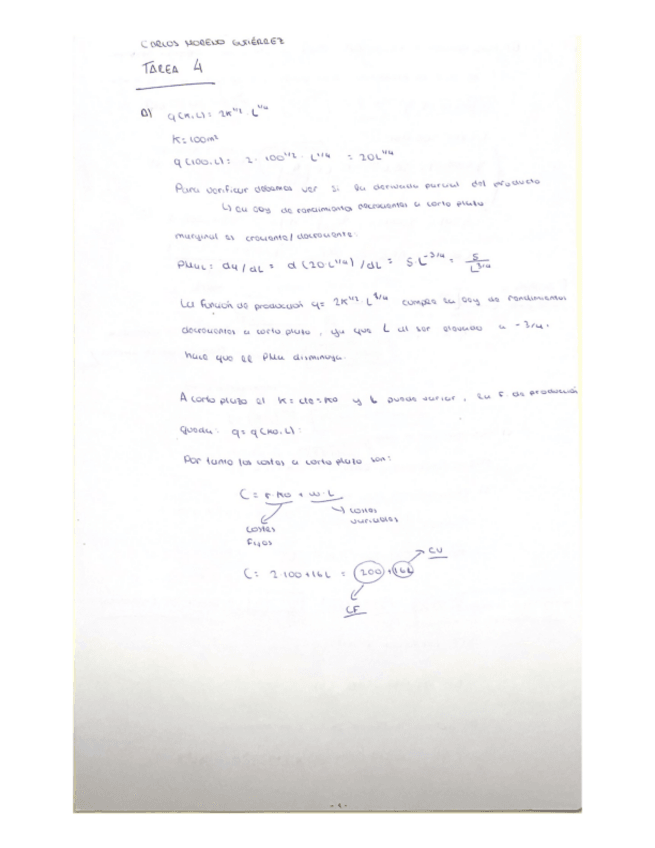 CARLOS MORENO GUTIÉRREZ
TAREA 4
a) q(K,L)= 2K^1/2 · L^1/4
K= 100m²
q(100,L)= 2 · 100^1/2 · L^1/4 = 20L^1/4
Para verificar debemos ver si la derivada parcial del producto
↳ la ley de rendimientos decrecientes a corto plazo
marginal es creciente/decreciente:
PMaL= dq/dL = d(20·L^1/4)/dL = 5·L^-3/4 = 5/L^3/4
La función de producción q= 2K^1/2 · L^1/4 cumple la ley de rendimientos
decrecientes a corto plazo, ya que L al ser elevado a -3/4,
hace que el PMa disminuya.
A corto plazo el K= cte = K0 y L puede variar, la f. de producción
queda: q= q(K0,L):
Por tanto los costes a corto plazo son:
C= r·K0 + w·L
Costes Fijos
Costes variables
C= 2·100+16L = 200+16L
CV
CF
- 1 -